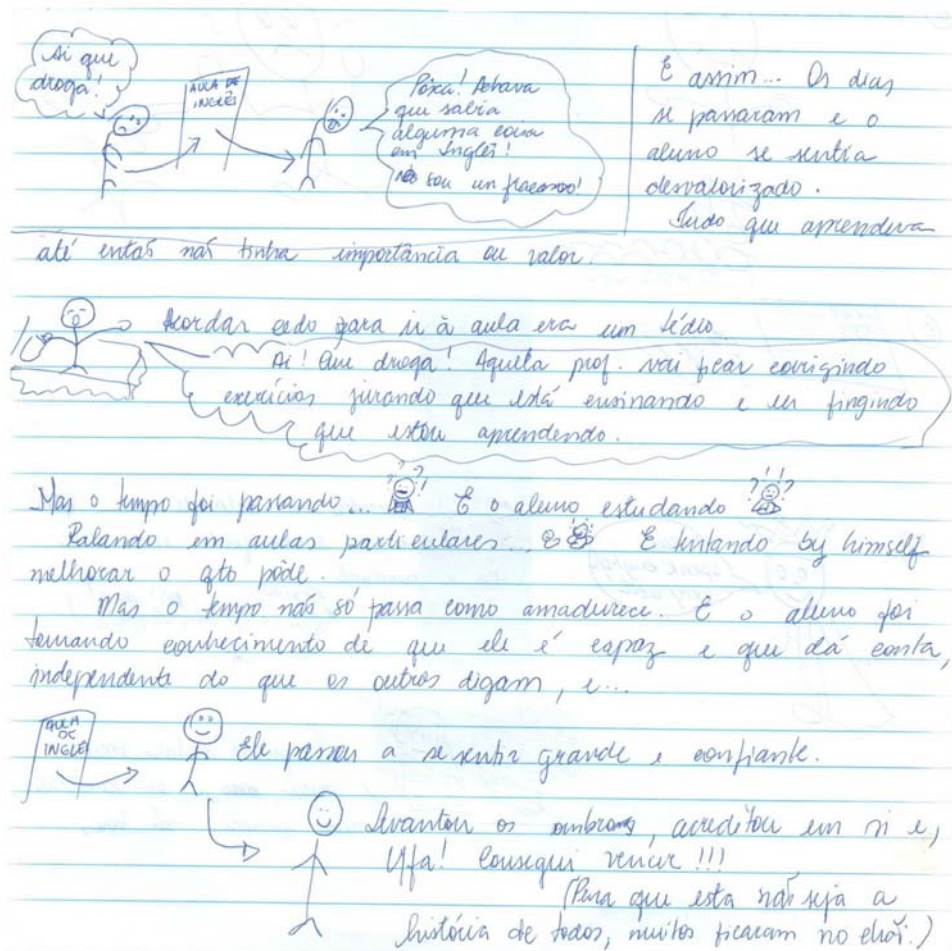 Ai que
droga!
AULA DE
INGLÊS
Pôxa! Achava
que sabia
alguma coisa
em Inglês!
sou un fracasso!
E assim... Os dias
se passaram e o
aluno se sentia
desvalorizado.
Tudo que aprendera
até então não tinha importância ou valor.
Acordar cedo para ir à aula era um tédio
Ai! Que droga! Aquela prof. vai ficar corrigindo
exercícios jurando que está ensinando e eu fingindo
que estou aprendendo.
Mas o tempo foi passando... ??? E o aluno estudando ?!!?
Ralando em aulas particulares... E tentando by himself
melhorar o qto pôde.
Mas o tempo não só passa como amadurece. E o aluno foi
tomando conhecimento de que ele é capaz e que dá conta,
independente do que os outros digam, e...
AULA
DE
INGLÊS
Ele passou a se sentir grande e confiante.
Levantou os ombros, acreditou em si e,
Ufa! Consegui vencer!!!
(Pena que esta não seja a
história de todos, muitos ficaram no chão.)